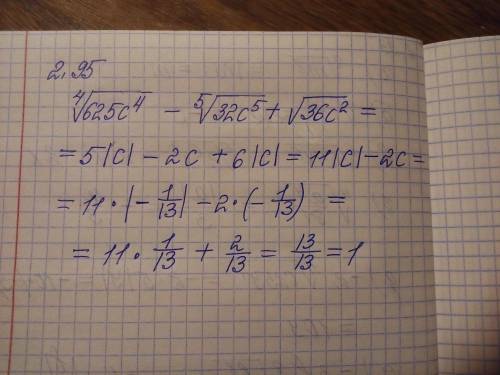 2.95
⁴√625c⁴ − ⁵√32c⁵ + √36c² =
= 5|c| − 2c + 6|c| = 11|c| − 2c =
= 11 · |−1/13| − 2 · (−1/13) =
= 11 · 1/13 + 2/13 = 13/13 = 1